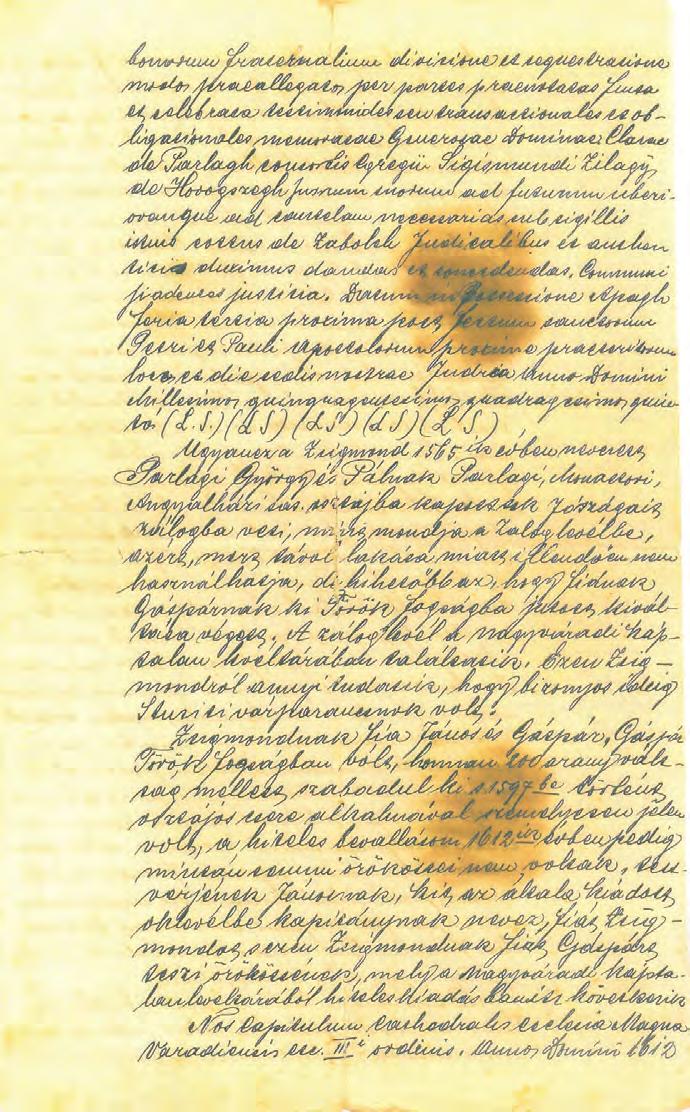 bonorum fraternalium divisione et sequestratione
modo praeallegato per partes praenotatas facta
et celebrata testimoniales seu transactionales et ob-
ligationales memoratae Generosae Dominae Clarae
de Parlagh consortis Egregii Sigismundi Zilagÿ
de Horogszegh jurium suorum ad futurum uberi-
oremque ad cautelam necessarias sub sigillis
istius cottus de Zabolch Judicialibus et authen
ticis duximus dandas et concedendas. Communi
justitia. Datum in Possessione Apagh
feria tertia proxima post festum sanctorum
Petri et Pauli apostolorum proxime praeteritorum
loco et die sedis nostrae Judria anno Domini
Millesimo quingentesimo quadragesimo quin-
to (L.S.) (LS) (LS) (LS) (LS)
Ugyanez a Zsigmond 1565 ik évben nevezet
Parlagi György és Pálnak Parlagi, Monostori,
Angyalházi sat. osztájba kapott Jószágait
zálogba veti, mint mondja a Záloglevélbe,
azért, mert távol lakása miatt illendően nem
használhatja, de hihetőbb az, hogy fiának
Gáspárnak ki Török fogságba jutott kivál-
tása végett. A záloglevél a nagyváradi káp-
talan levéltárában találtatik. Ezen Zsig-
mondról annyi tudatik, hogy bizonyos ideig
várparancsnok volt.
Zsigmondnak fia János és Gáspár, Gáspár
Török fogságban volt, honnan 200 arany vált-
ság mellett szabadul ki s 1597 be történt
osztájos csere alkalmával személyesen jelen
volt, a hiteles bevalláson 1612 ik évben pedig
miután semmi örökösei nem voltak, test-
vérjének Jánosnak, kit az általa kiadott
oklevélbe kapitánynak nevez, fiát Zsig-
mondot s ezen Zsigmondnak fiát Gáspárt
teszi örökösének, mely a nagyváradi kápta-
lan levéltárából hiteles kiadás szerint következik
Nos Capitulum Cathedralis ecclesia Magno
Varadiensis etc. III i ordinis. Anno Domini 1612